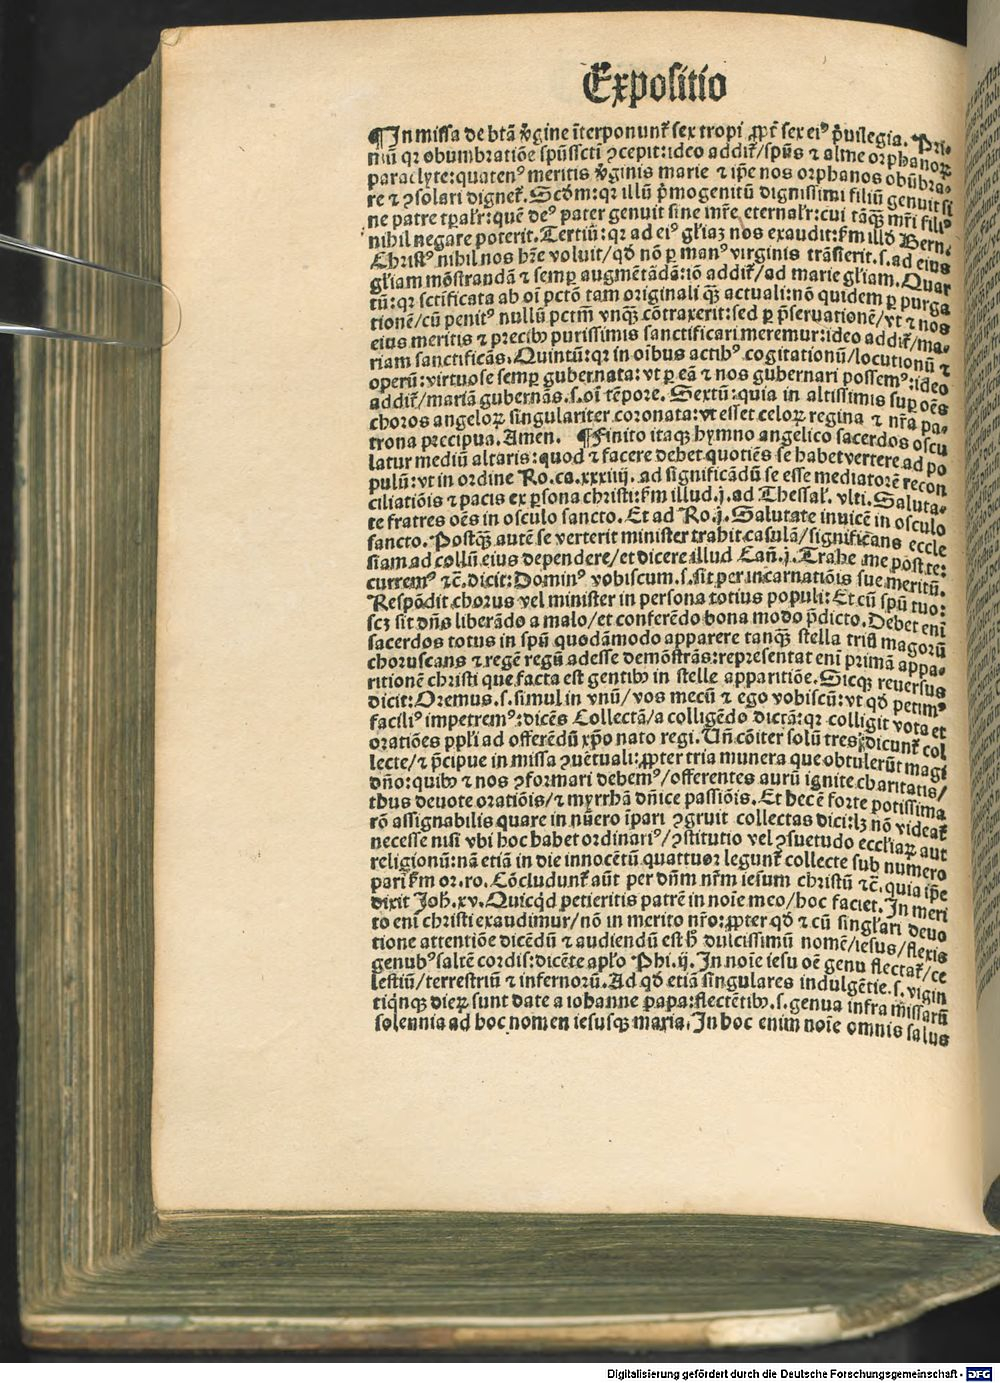 Expositio
¶In missa de btā v̄gine īterponunt̄ sex tropi ꝓpt̄ sex eiꝰ p̄uilegia. Pri-
mū qꝛ obumbratiōe spūssctī ꝯcepit: ideo addit̄/spūs ⁊ alme orphanoꝝ
paraclyte: quatenꝰ meritis v̄ginis marie ⁊ ip̄e nos orphanos obūbra-
re ⁊ ꝯsolari dignet̄. Scd̄m: qꝛ illū p̄mogenitū dignissimi filiū genuit si
ne patre tꝑalr̄: quē deꝰ pater genuit sine mr̄e eternalr̄: cui tāqꝫ mr̄i filiꝰ
nihil negare poterit. Tertiū: qꝛ ad eiꝰ gl̄iaꝫ nos exaudit: s̄m illd̄ Bern.
Christꝰ nihil nos hr̄e voluit/qd̄ nō ꝑ manꝰ virginis trāsierit. s. ad eius
gl̄iam mōstrandā ⁊ semꝑ augmētādā: iō addit̄/ad marie gl̄iam. Quar
tū: qꝛ sctīficata ab oī pctō tam originali qꝫ̄ actuali: nō quidem ꝑ purga
tionē/cū penitꝰ nullū pctm̄ vnqꝫ cōtraxerit: sed ꝑ p̄seruationē/vt ⁊ nos
eius meritis ⁊ precibꝰ purissimis sanctificari meremur: ideo addit̄/ma-
riam sanctificās. Quintū: qꝛ in oībus actibꝰ cogitationū/locutionū ⁊
operū: virtuose semꝑ gubernata: vt ꝑ eā ⁊ nos gubernari possemꝰ: ideo
addit̄/mariā gubernās. s. oī tēpore. Sextū: quia in altissimis suꝑ oēs
choros angeloꝝ singulariter coronata: vt esset celoꝝ regina ⁊ nr̄a pa-
trona precipua. Amen. ¶Finito itaqꝫ hymno angelico sacerdos oscu
latur mediū altaris: quod ⁊ facere debet quotiēs se habet vertere ad po
pulū: vt in ordine Ro. ca. xxxiiij. ad significādū se esse mediatorē recon
ciliatiōis ⁊ pacis ex ꝑsona christi: s̄m illud. j. ad Thessal̄. vlti. Saluta-
te fratres oēs in osculo sancto. Et ad Ro. j. Salutate inuicē in osculo
sancto. Postqꝫ̄ autē se verterit minister trahit casulā/significans eccle
siam ad collū eius dependere/et dicere illud Can̄. j. Trahe me post te:
curremꝰ ⁊c̄. dicit: Dominꝰ vobiscum. s. sit per incarnatiōis sue meritū.
Respōdit chorus vel minister in persona totius populi: Et cū spū tuo:
scꝫ sit dn̄s liberādo a malo/et conferēdo bona modo p̄dicto. Debet enī
sacerdos totus in spū quodāmodo apparere tanqꝫ̄ stella triū magorū
choruscans ⁊ regē regū adesse demōstrās: representat enī primā appa-
ritionē christi que facta est gentibꝰ in stelle apparitiōe. Sicqꝫ reuersus
dicit: Oremus. s. simul in vnū/vos mecū ⁊ ego vobiscū: vt qd̄ petimꝰ
faciliꝰ impetremꝰ: dicēs Collectā/a colligēdo dictā: qꝛ colligit vota et
oratiōes ppl̄i ad offerēdū xp̄o nato regi. Vn̄ cōiter solū tres dicunt̄ col
lecte/⁊ p̄cipue in missa ꝯuētuali: ꝓpter tria munera que obtulerūt magi
dn̄o: quibꝰ ⁊ nos ꝯformari debemꝰ/offerentes aurū ignite charitatis/
thus deuote oratiōis/⁊ myrrhā dn̄ice passiōis. Et hec ē forte potissima
rō assignabilis quare in nūero īpari ꝯgruit collectas dici: lꝫ nō videat̄
necesse nisi vbi hoc habet ordinariꝰ/ꝯstitutio vel ꝯsuetudo eccl̄iaꝝ aut
religionū: nā etiā in die innocētū quattuor legunt̄ collecte sub numero
pari s̄m or. ro. Cōcludunt̄ aūt per dn̄m nr̄m iesum christū ⁊c̄. quia ip̄e
dixit Joh̄. xv. Quicqd̄ petieritis patrē in noīe meo/hoc faciet. In meri
to enī christi exaudimur/nō in merito nr̄o: ꝓpter qd̄ ⁊ cū singl̄ari deuo
tione attentiōe dicēdū ⁊ audiendū est h̄ dulcissimū nomē/iesus/flexis
genubꝰ saltē cordis: dicēte apl̄o Phi. ij. In noīe iesu oē genu flectat̄/ce
lestiū/terrestriū ⁊ infernorū. Ad qd̄ etiā singulares indulgētie. s. vigin
tiqnqꝫ dieꝝ sunt date a iohanne papa: flectētibꝰ. s. genua infra missarū
solennia ad hoc nomen iesusqꝫ maria. In hoc enim noīe omnis salus
Digitalisierung gefördert durch die Deutsche Forschungsgemeinschaft - DFG